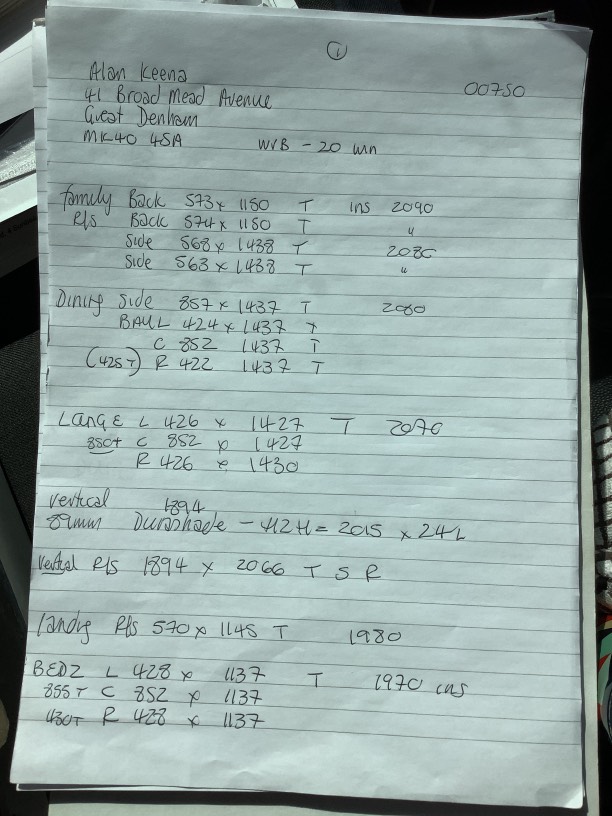 1
Alan Keena 00750
41 Broad Mead Avenue
Great Denham
MK40 4SA WVB - 20 wn
family Back 573 x 1150 T ins 2090
R/s Back 574 x 1150 T "
Side 568 x 1438 T 2080
Side 563 x 1438 T "
Dining Side 857 x 1437 T 2080
424 x 1437 T
C 852 1437 T
(425T) R 422 1437 T
L 426 x 1427 T 2070
850T C 852 x 1427
R 426 x 1430
vertical 1894
89mm Durashade - = 2015 x 24L
Vertical R/s 1894 x 2066 T S R
Landing R/s 570 x 1145 T 1980
BED2 L 428 x 1137 T 1970 ins
855T C 852 x 1137
430T R 428 x 1137